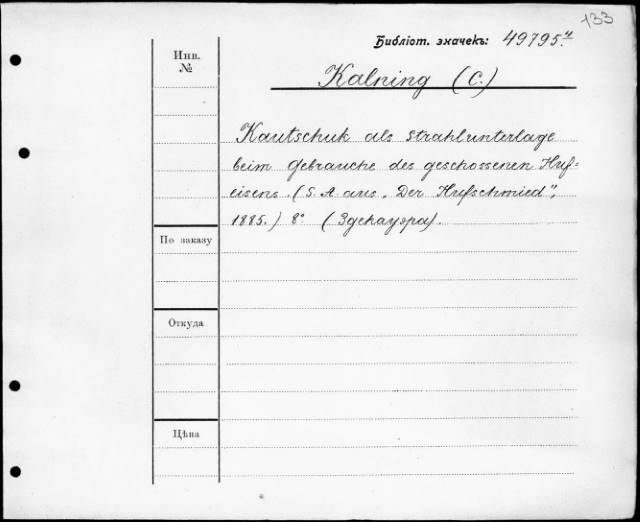 133
Библіот. значекъ: 49795.4
Инв.
№
Kalning (C.)
Kautschuk als Strahlunterlage
beim Gebrauche des geschossenen Huf=
eisens. (S. A. aus „Der Hufschmied",
1885.) 8° (Здекауэра).
По заказу
Откуда
Цѣна